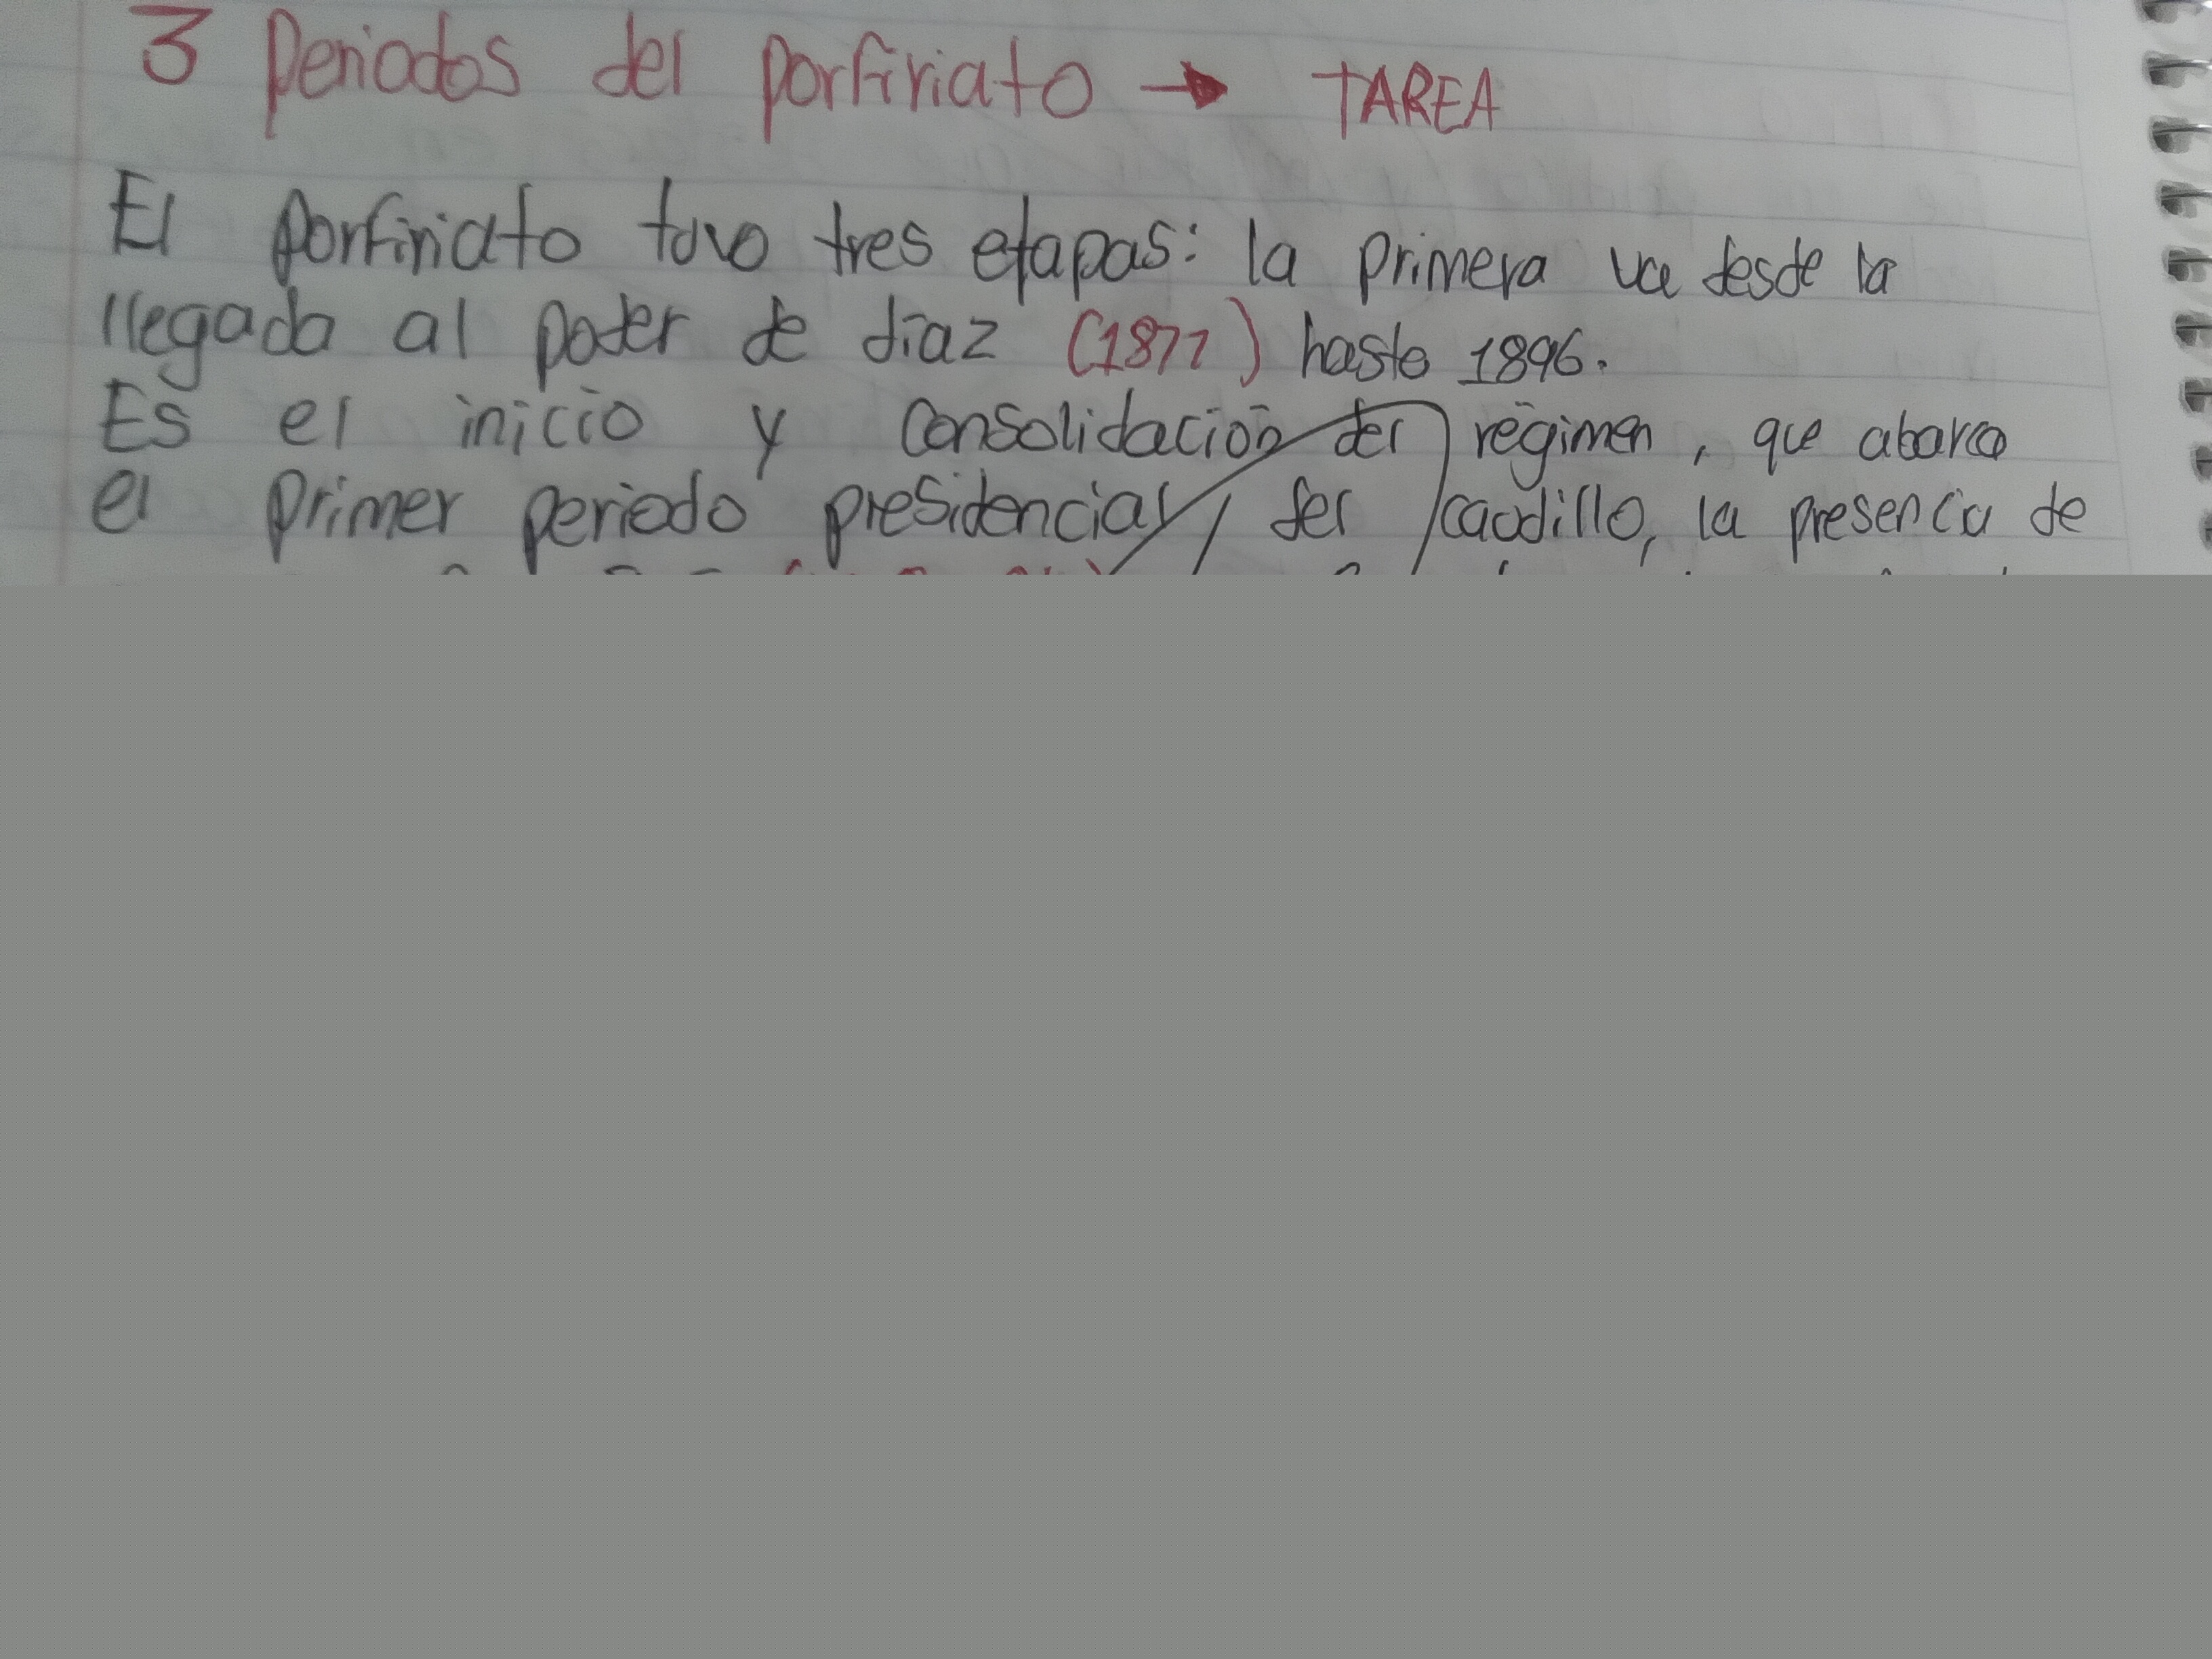 3 Periodos del porfiriato → TAREA
El porfiriato tuvo tres etapas: la primera va desde la
llegada al poder de díaz (1877) hasta 1896.
Es el inicio y consolidación del régimen, que abarca
el primer periodo presidencial, del caudillo, la presencia de